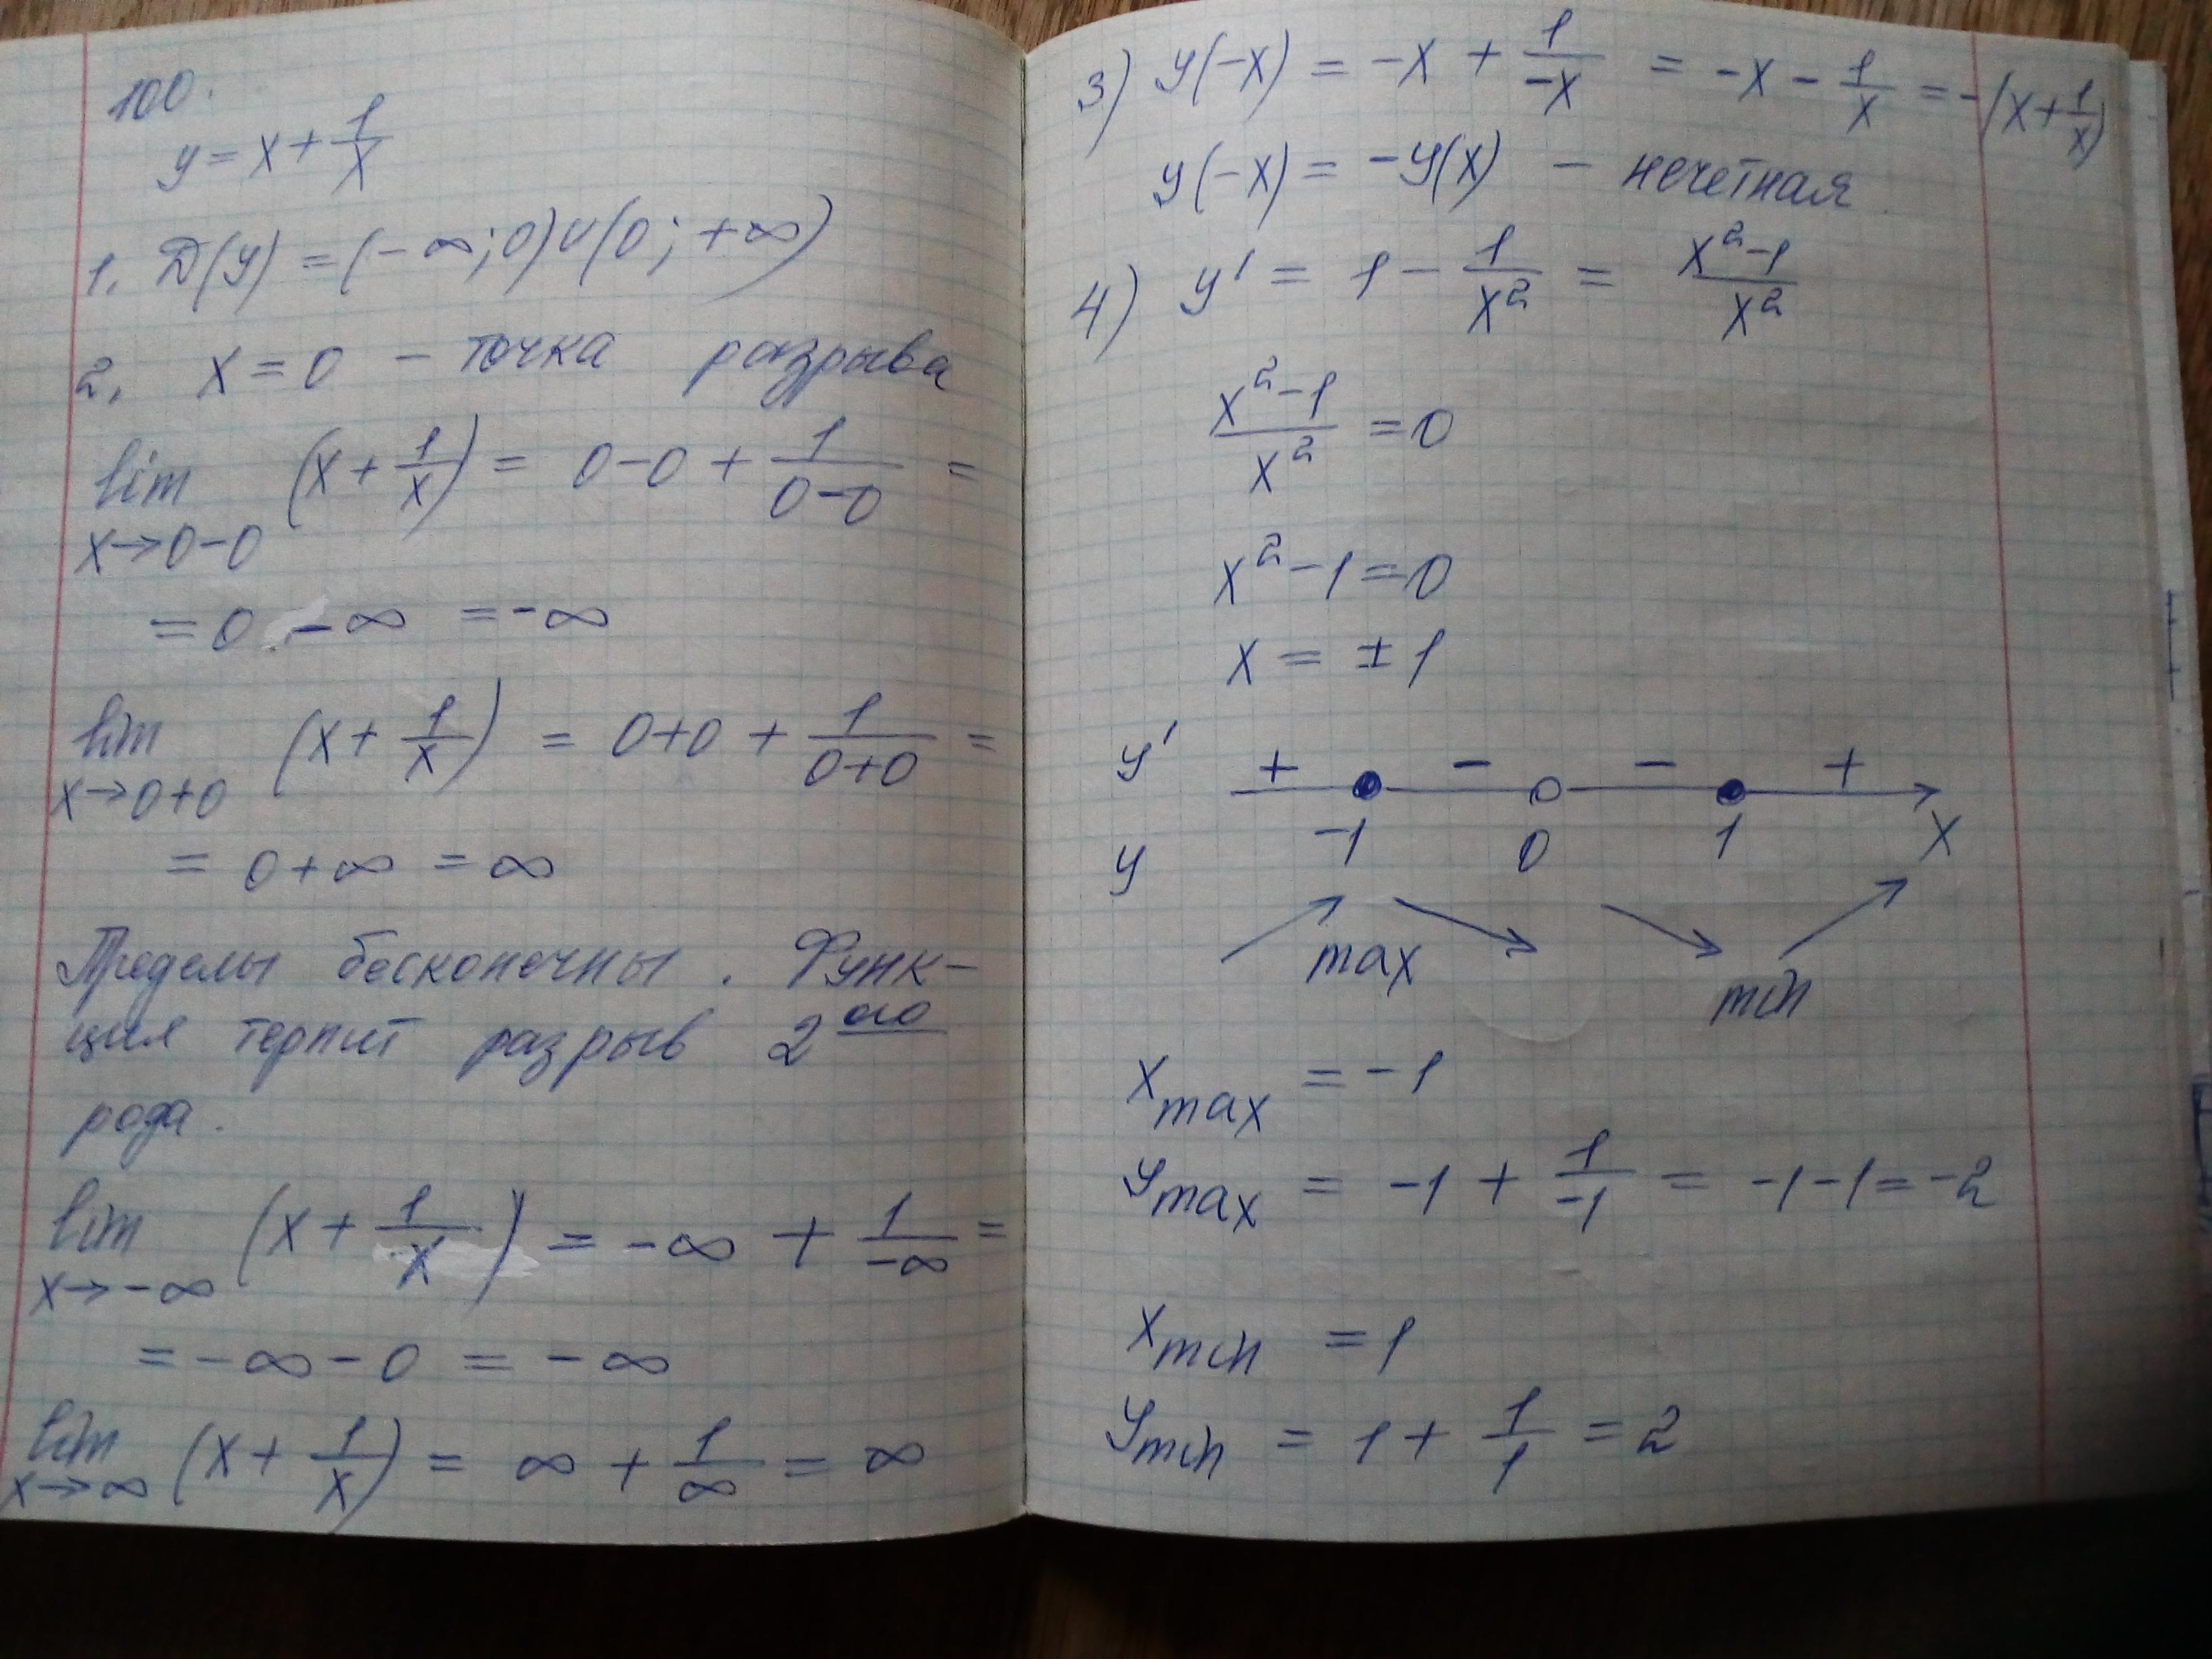 100.
y = x + 1/x
1. D(y) = (-∞; 0) ∪ (0; +∞)
2. x = 0 - точка разрыва
lim x→0-0 (x + 1/x) = 0-0 + 1/(0-0) =
= 0 - ∞ = -∞
lim x→0+0 (x + 1/x) = 0+0 + 1/(0+0) =
= 0 + ∞ = ∞
Пределы бесконечны. Функ-
ция терпит разрыв 2ого
рода.
lim x→-∞ (x + 1/x) = -∞ + 1/-∞ =
= -∞ - 0 = -∞
lim x→∞ (x + 1/x) = ∞ + 1/∞ = ∞
3) y(-x) = -x + 1/-x = -x - 1/x = -(x + 1/x)
y(-x) = -y(x) - нечетная
4) y' = 1 - 1/x² = (x²-1)/x²
(x²-1)/x² = 0
x² - 1 = 0
x = ±1
y' + - - +
-1 0 1 x
y
max min
x max = -1
y max = -1 + 1/-1 = -1-1 = -2
x min = 1
y min = 1 + 1/1 = 2